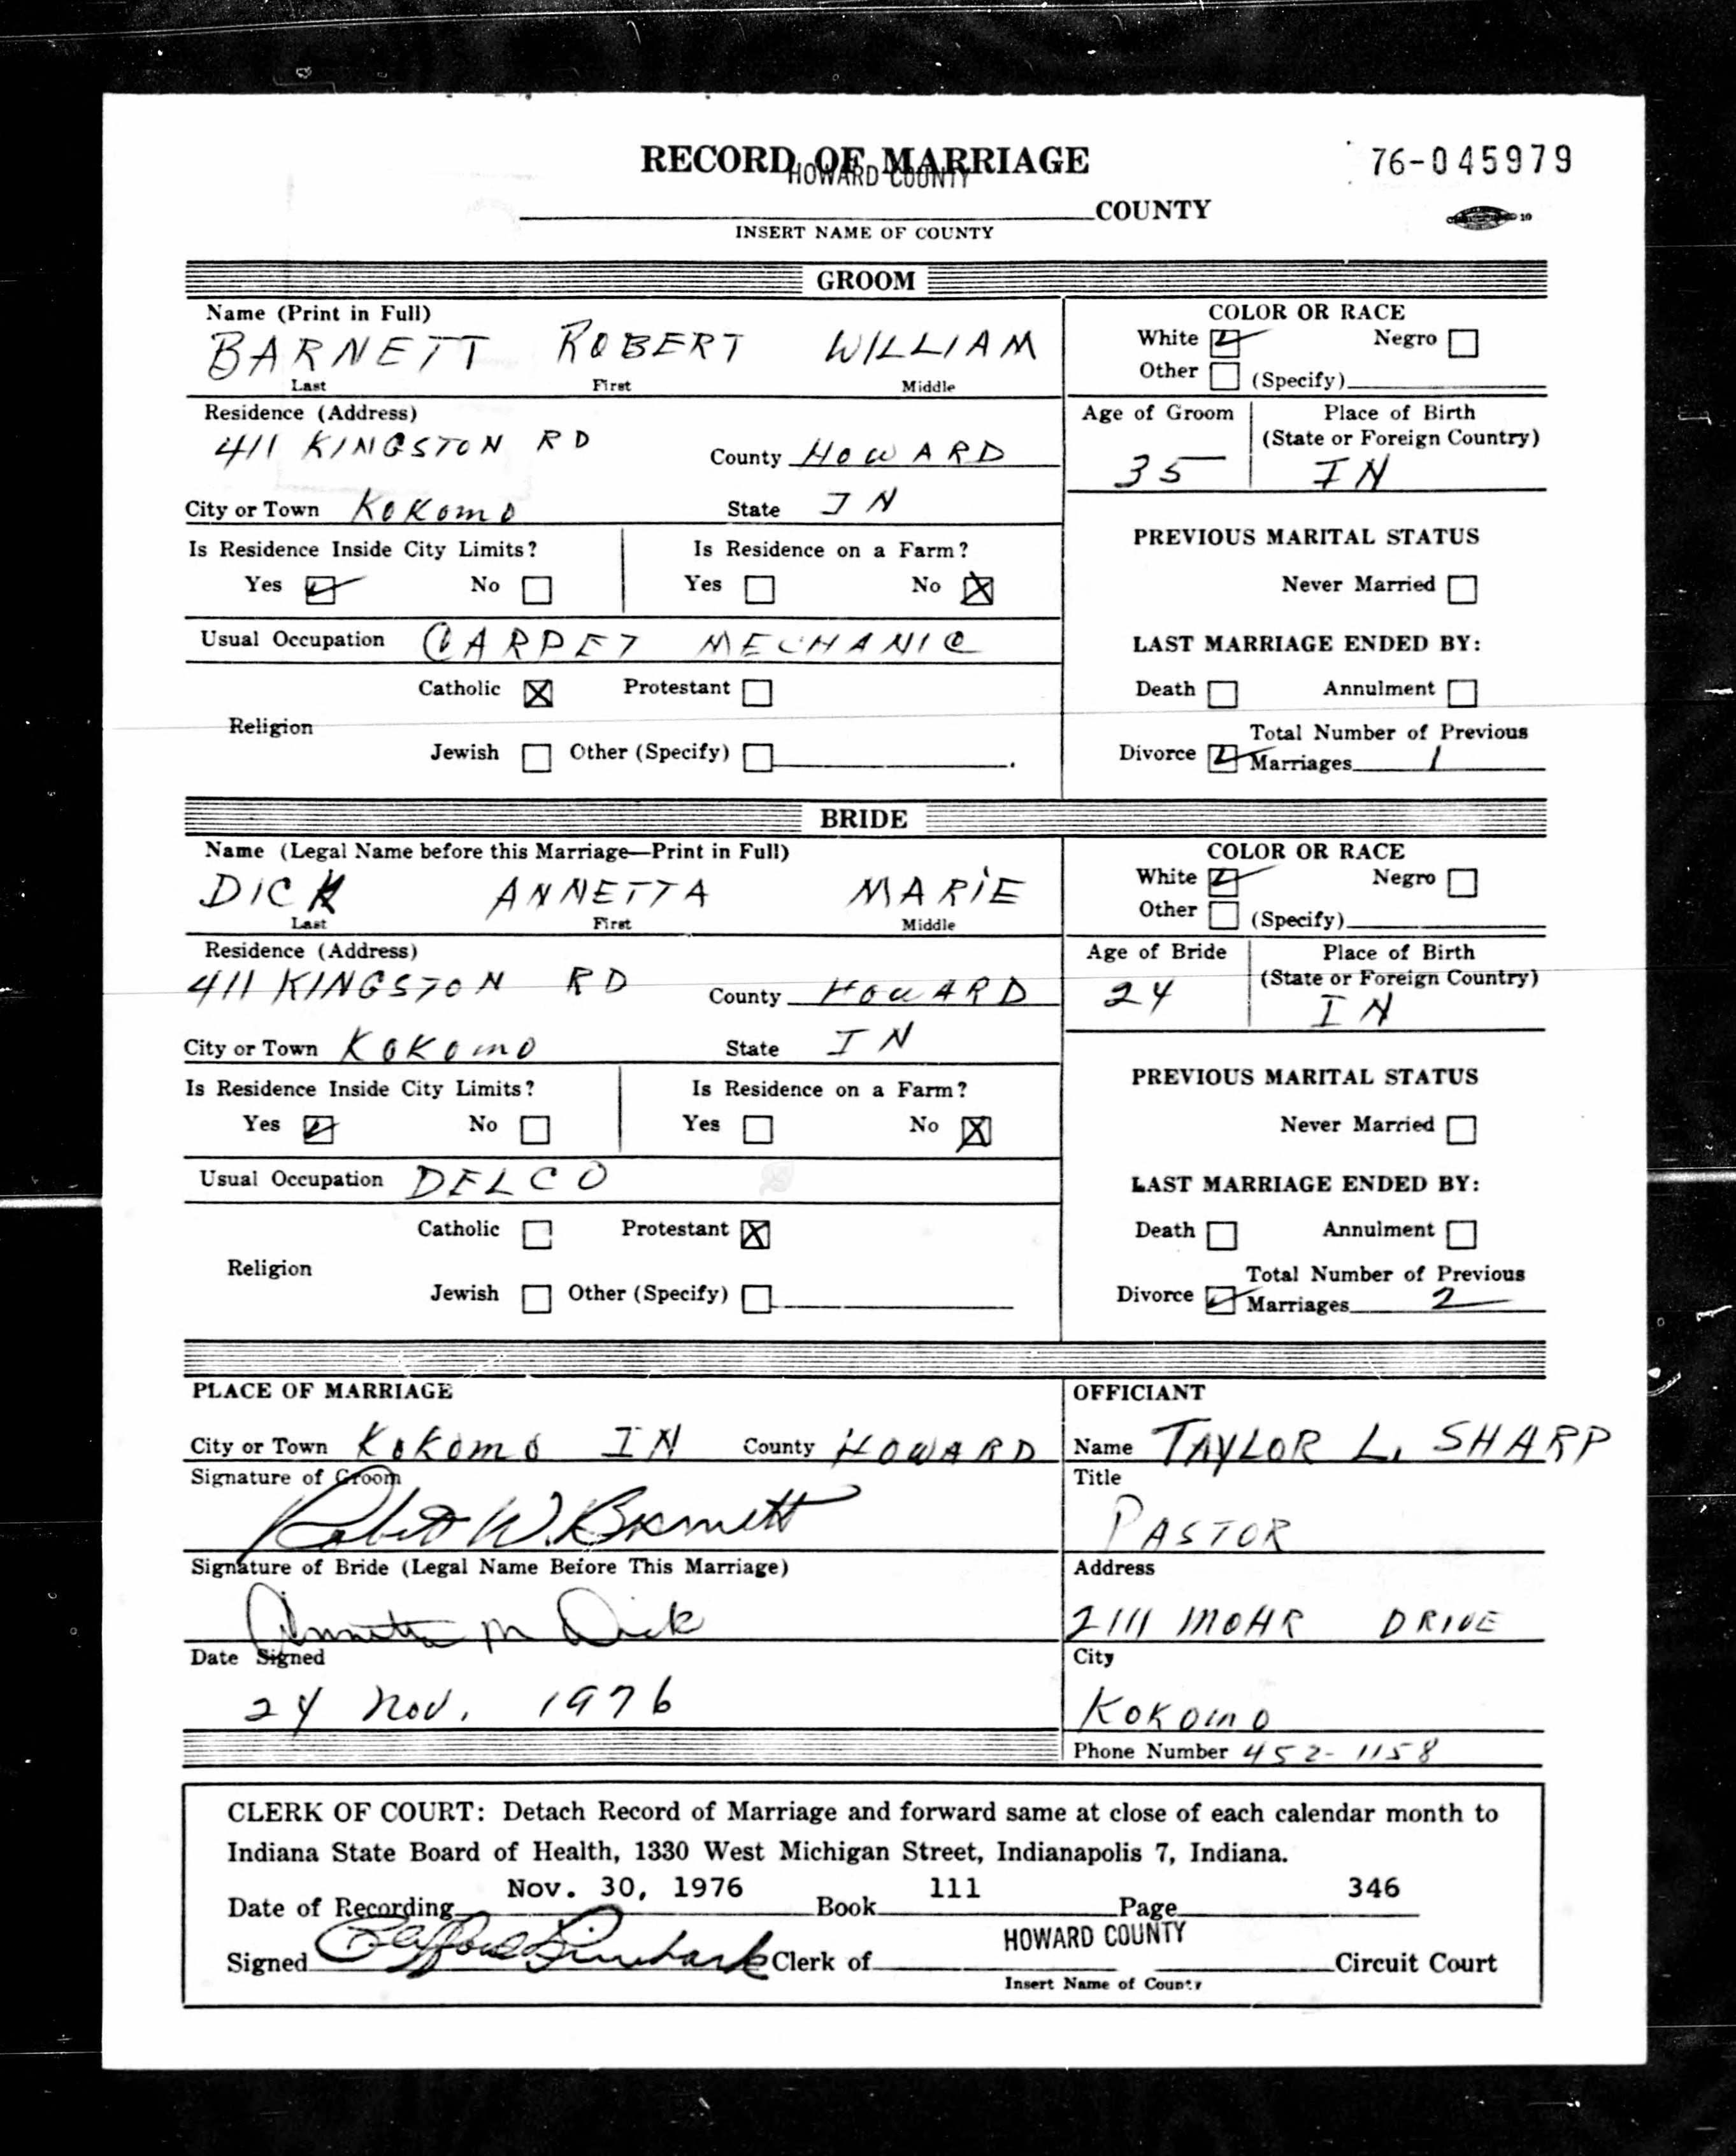 RECORD OF MARRIAGE
76-045979
HOWARD COUNTY
COUNTY
10
INSERT NAME OF COUNTY
GROOM
Name (Print in Full)
BARNETT ROBERT WILLIAM
Last First Middle
COLOR OR RACE
White ☑ Negro ☐
Other ☐ (Specify)
Residence (Address)
411 KINGSTON RD County HOWARD
Age of Groom
35
Place of Birth
(State or Foreign Country)
IN
City or Town KOKOMO State IN
Is Residence Inside City Limits? Is Residence on a Farm?
Yes ☑ No ☐ Yes ☐ No ☒
PREVIOUS MARITAL STATUS
Never Married ☐
Usual Occupation CARPET MECHANIC
LAST MARRIAGE ENDED BY:
Catholic ☒ Protestant ☐
Death ☐ Annulment ☐
Religion
Jewish ☐ Other (Specify) ☐
Total Number of Previous
Divorce ☑ Marriages 1
BRIDE
Name (Legal Name before this Marriage—Print in Full)
DICK ANNETTA MARIE
Last First Middle
COLOR OR RACE
White ☑ Negro ☐
Other ☐ (Specify)
Residence (Address)
411 KINGSTON RD County HOWARD
Age of Bride
24
Place of Birth
(State or Foreign Country)
IN
City or Town KOKOMO State IN
Is Residence Inside City Limits? Is Residence on a Farm?
Yes ☑ No ☐ Yes ☐ No ☒
PREVIOUS MARITAL STATUS
Never Married ☐
Usual Occupation DELCO
LAST MARRIAGE ENDED BY:
Catholic ☐ Protestant ☒
Death ☐ Annulment ☐
Religion
Jewish ☐ Other (Specify) ☐
Total Number of Previous
Divorce ☑ Marriages 2
PLACE OF MARRIAGE
City or Town KOKOMO IN County HOWARD
Signature of Groom
Robert W. Barnett
Signature of Bride (Legal Name Before This Marriage)
Annetta M Dick
Date Signed
24 Nov. 1976
OFFICIANT
Name TAYLOR L. SHARP
Title
PASTOR
Address
2111 MOHR DRIVE
City
KOKOMO
Phone Number 452-1158
CLERK OF COURT: Detach Record of Marriage and forward same at close of each calendar month to
Indiana State Board of Health, 1330 West Michigan Street, Indianapolis 7, Indiana.
Date of Recording Nov. 30, 1976 Book 111 Page 346
Signed Clerk of HOWARD COUNTY Circuit Court
Insert Name of County